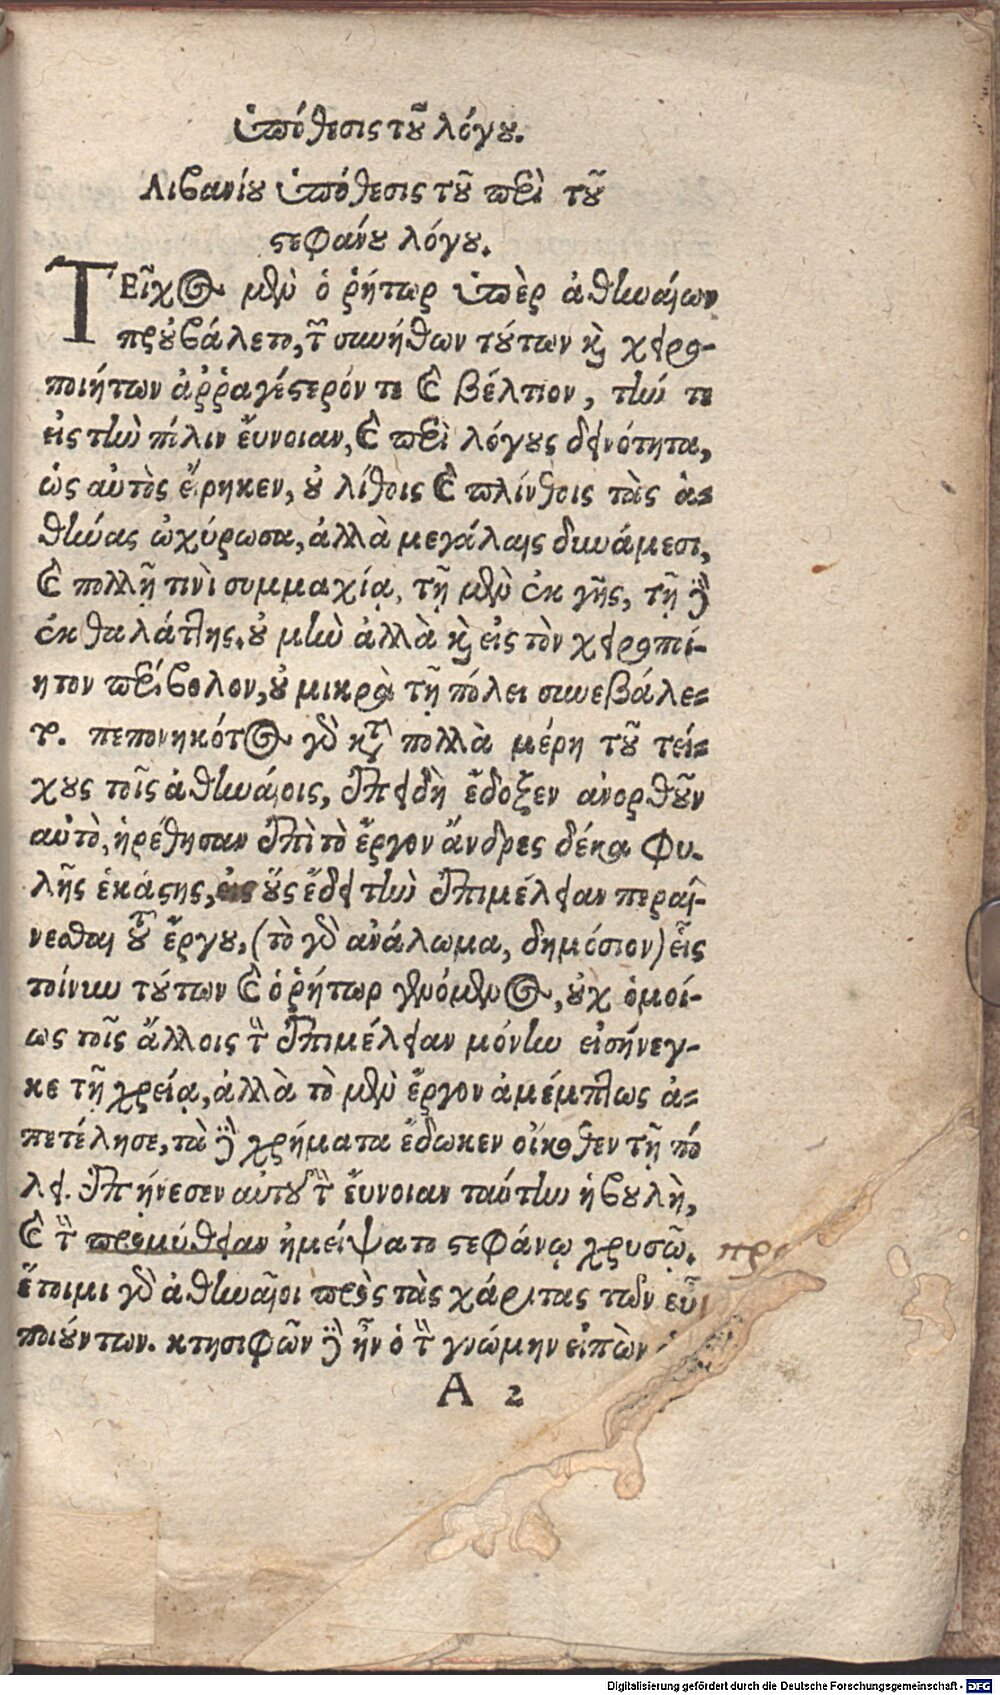 ὑπόθεσις τοῦ λόγου.
Λιβανίου ὑπόθεσις τοῦ περὶ τοῦ
στεφάνου λόγου.
ΤΕῖχος μὲν ὁ ῥήτωρ ὑπὲρ ἀθηναίων
προὐβάλετο, τῶν συνήθων τούτων καὶ χειρο-
ποιήτων ἀῤῥαγέστερόν τε καὶ βέλτιον, τήν τε
εἰς τὴν πόλιν εὔνοιαν, καὶ περὶ λόγους δεινότητα,
ὡς αὐτὸς εἴρηκεν, οὐ λίθοις καὶ πλίνθοις τὰς ἀ-
θήνας ὠχύρωσα, ἀλλὰ μεγάλαις δυνάμεσι,
καὶ πολλῇ τινὶ συμμαχίᾳ, τῇ μὲν ἐκ γῆς, τῇ δὲ
ἐκ θαλάττης. οὐ μὴν ἀλλὰ καὶ εἰς τὸν χειροποί-
ητον περίβολον, οὐ μικρὰ τῇ πόλει συνεβάλε-
το. πεπονηκότος γὰρ κατὰ πολλὰ μέρη τοῦ τεί-
χους τοῖς ἀθηναίοις, ἐπειδὴ ἔδοξεν ἀνορθοῦν
αὐτὸ, ᾑρέθησαν ἐπὶ τὸ ἔργον ἄνδρες δέκα φυ-
λῆς ἑκάστης, εἰς οὓς ἔδει τὴν ἐπιμέλειαν περαί-
νεσθαι τοῦ ἔργου, (τὸ γὰρ ἀνάλωμα, δημόσιον) εἷς
τοίνυν τούτων καὶ ὁ ῥήτωρ γενόμενος, οὐχ ὁμοί-
ως τοῖς ἄλλοις τὴν ἐπιμέλειαν μόνην εἰσήνεγ-
κε τῇ χρείᾳ, ἀλλὰ τὸ μὲν ἔργον ἀμέμπτως ἀ-
πετέλησε, τὰ δὲ χρήματα ἔδωκεν οἴκοθεν τῇ πό
λει. ἐπῄνεσεν αὐτοῦ τὴν εὔνοιαν ταύτην ἡ βουλὴ,
καὶ τὴν προμύθειαν ἠμείψατο στεφάνῳ χρυσῷ. προ
ἕτοιμοι γὰρ ἀθηναῖοι πρὸς τὰς χάριτας τῶν εὖ
ποιούντων. κτησιφῶν δὲ ἦν ὁ τὴν γνώμην εἰπὼν
A 2
Digitalisierung gefördert durch die Deutsche Forschungsgemeinschaft - DFG